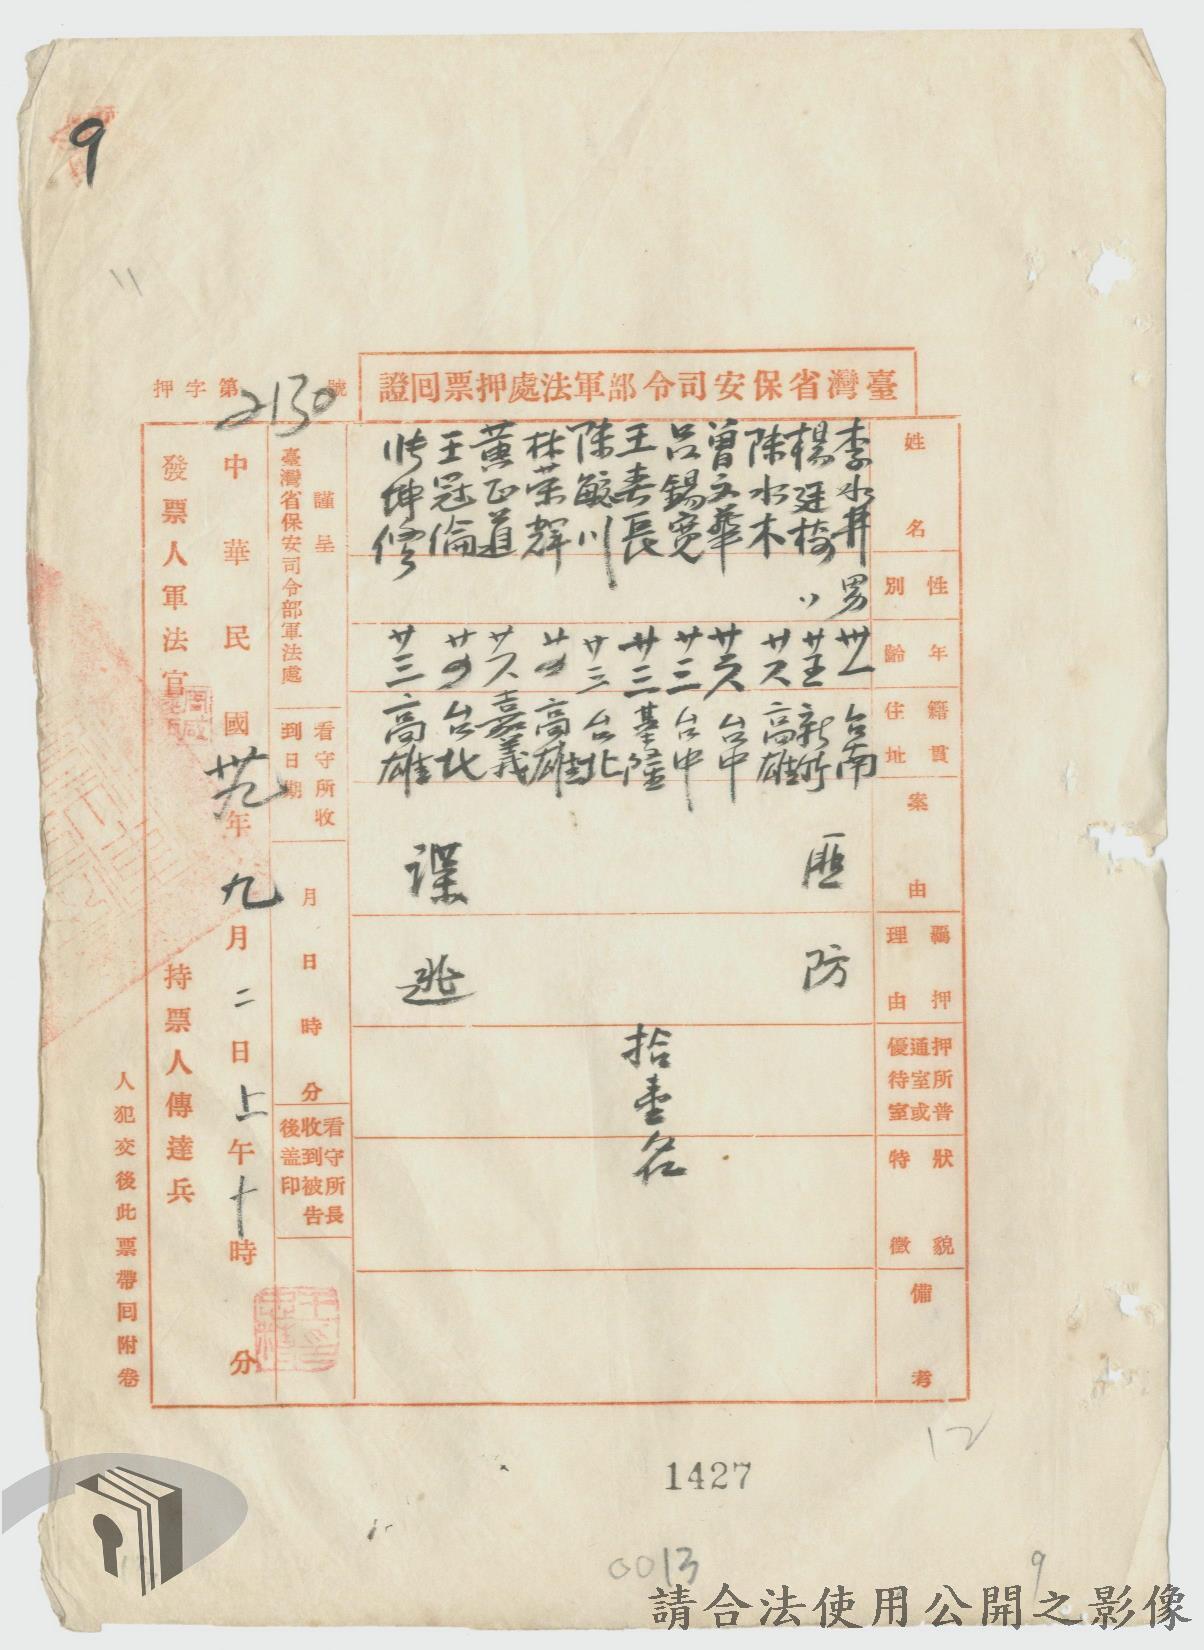 9
臺灣省保安司令部軍法處押票回證
押字第2130號
姓名
性別
年齡
籍貫住址
案由
羈押理由
押所普通室或優待室
狀貌特徵
備考
李水井 男 卅一 台南
楊廷椅 〃 廿五 新竹
陳水木 廿八 高雄
曾文華 廿六 台中
呂錫寬 廿三 台中
王春長 廿三 基隆
陳敏川 廿三 台北
林荣輝 廿四 高雄
黃正道 廿八 嘉義
王冠倫 廿四 台北
坤修 廿三 高雄
匪諜
防逃
拾壹名
謹呈
臺灣省保安司令部軍法處
看守所收到日期
月日時分
看守所長收到被告後盖印
中華民國卅九年九月二日上午十時分
發票人軍法官
持票人傳達兵
人犯交後此票帶回附卷
12
1427
0013
9
請合法使用公開之影像